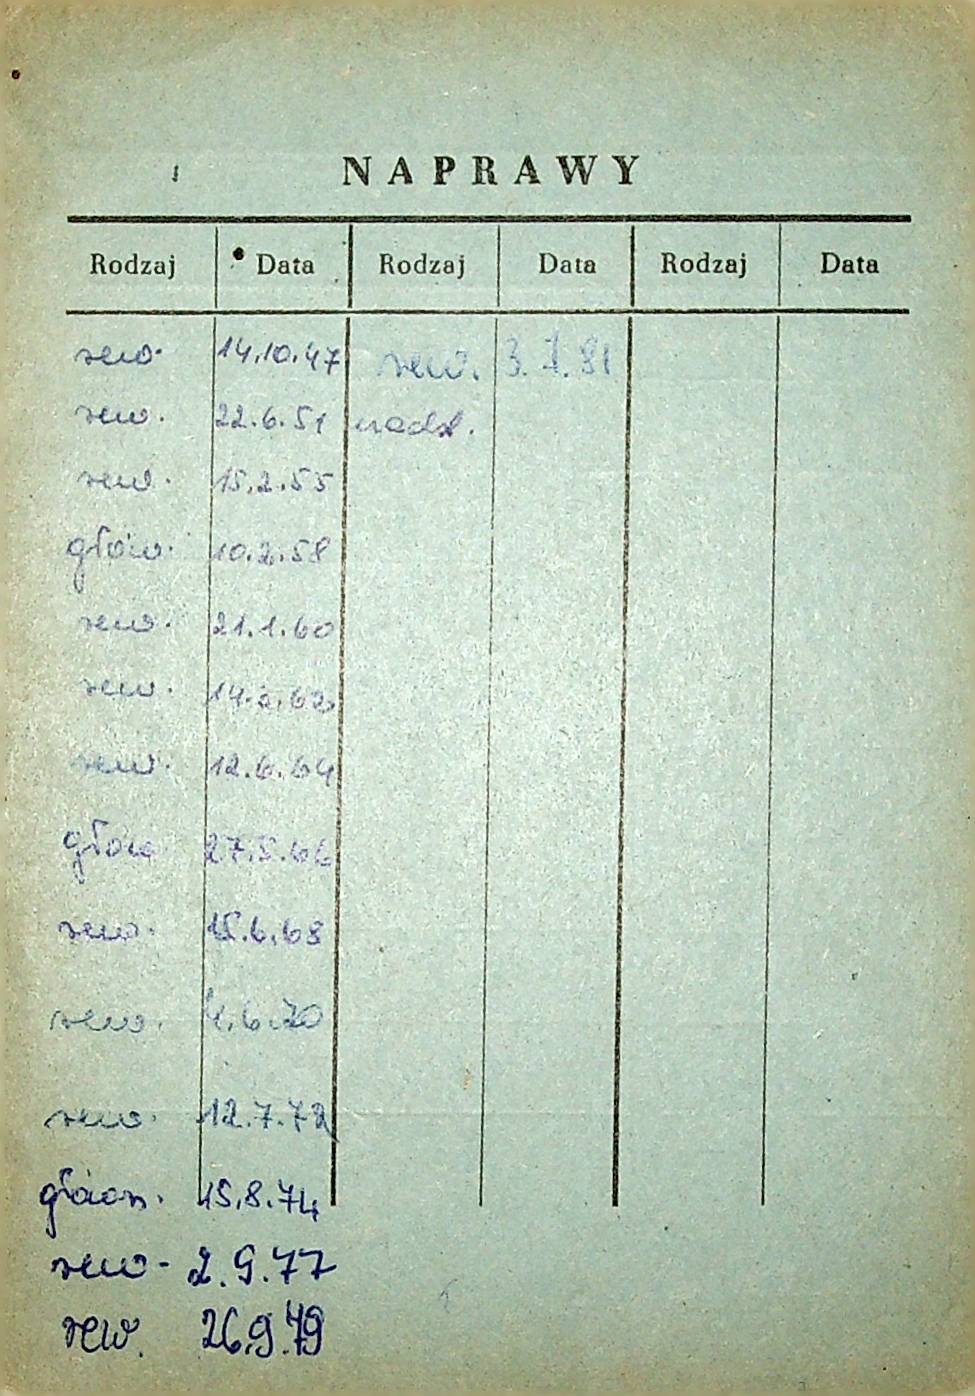 NAPRAWY
Rodzaj Data Rodzaj Data Rodzaj Data
rew. 14.10.47 rew. 3.7.81
rew. 22.6.51 nadzw.
rew. 15.2.55
głów. 10.2.58
rew. 21.1.60
rew. 14.2.62
rew. 12.6.64
głów 27.5.66
rew. 15.6.68
rew. 4.6.70
rew. 12.7.72
główn. 15.8.74
rew- 2.9.77
rew. 26.9.79